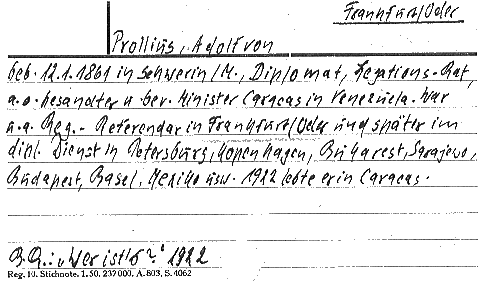 Frankfurt/Oder
Prollius, Adolf von
geb. 12.1.1861 in Schwerin/M., Diplomat, Legations-Rat,
a.o. Gesandter u bev. Minister Caracas in Venezuela. War
u.a. Reg.- Referendar in Frankfurt/Oder und später im
dipl. Dienst in Petersburg, Kopenhagen, Bukarest, Sarajewo,
Budapest, Basel, Mexiko usw. 1912 lebte er in Caracas.
B.Q.: „Wer ist's?" 1922
Reg. 10. Stichnote. 1. 50. 237000. A. 803, S. 4062